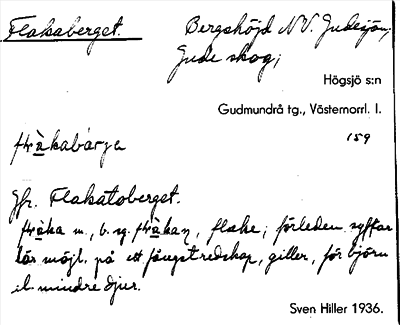 Flakaberget. Bergshöjd N.V. Gudesjön,
Gude skog;
Högsjö s:n
Gudmundrå tg., Västernorrl. l.
159
Jfr. Flakatoberget.
m., b. sg. flake; förleden syftar
lär möjl. på ett fångstredskap, giller, för björn
el. mindre djur.
Sven Hiller 1936.